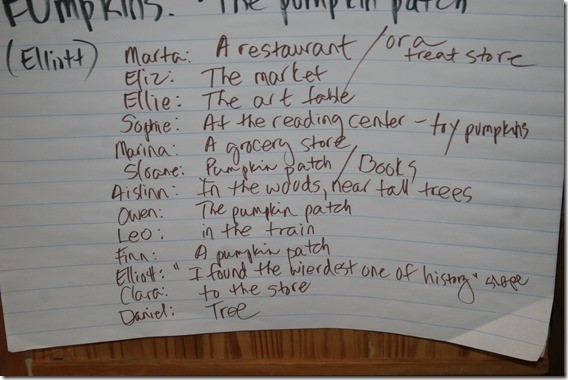 PUMPKINS: The pumpkin patch
(Elliott)
Marta: A restaurant / or a treat store
Eliz: The market
Ellie: The art table
Sophie: At the reading center - toy pumpkins
Marina: A grocery store
Sloane: Pumpkin patch / Books
Aislinn: In the woods, near tall trees
Owen: The pumpkin patch
Leo: in the train
Finn: A pumpkin patch
Elliott: "I found the wierdest one of history" shape
Clara: to the store
Daniel: Tree